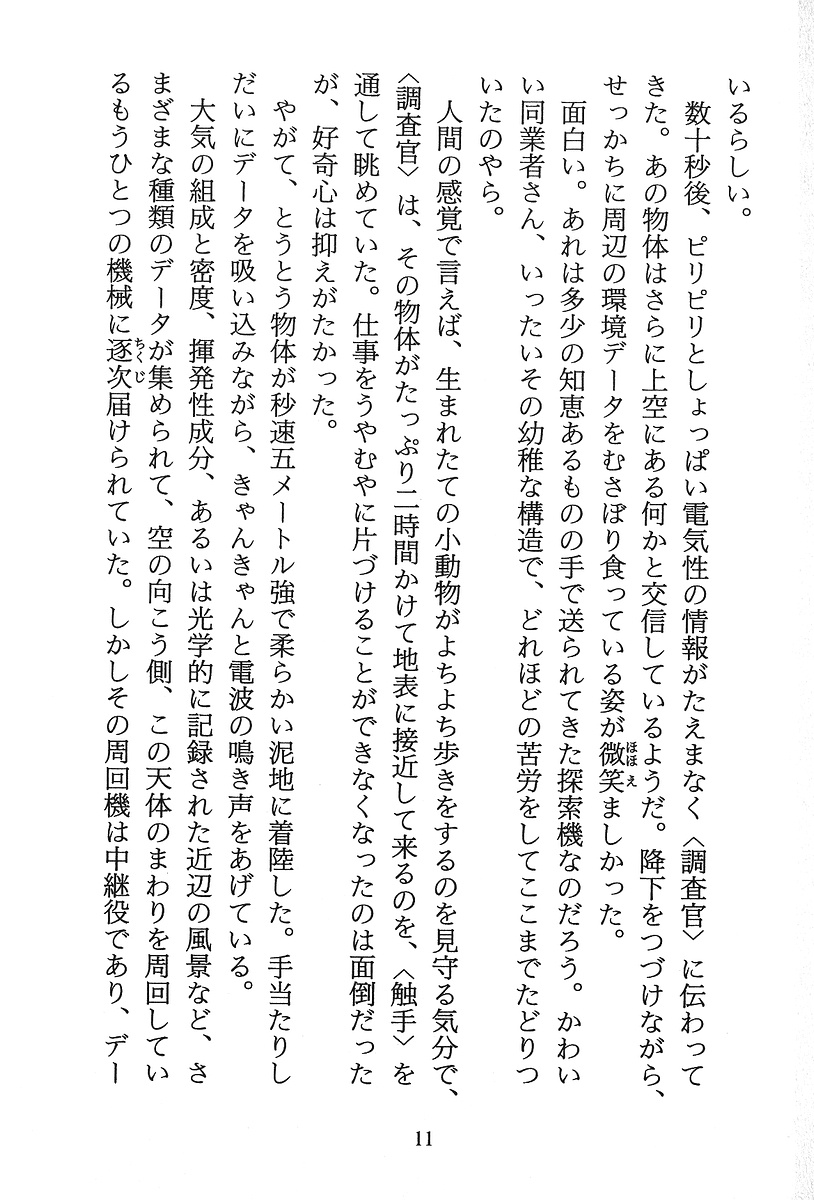 いるらしい。
　数十秒後、ピリピリとしょっぱい電気性の情報がたえまなく〈調査官〉に伝わって
きた。あの物体はさらに上空にある何かと交信しているようだ。降下をつづけながら、
せっかちに周辺の環境データをむさぼり食っている姿が微笑ましかった。
ほほえ
　面白い。あれは多少の知恵あるものの手で送られてきた探索機なのだろう。かわい
い同業者さん、いったいその幼稚な構造で、どれほどの苦労をしてここまでたどりつ
いたのやら。
　人間の感覚で言えば、生まれたての小動物がよちよち歩きをするのを見守る気分で、
〈調査官〉は、その物体がたっぷり二時間かけて地表に接近して来るのを、〈触手〉を
通して眺めていた。仕事をうやむやに片づけることができなくなったのは面倒だった
が、好奇心は抑えがたかった。
　やがて、とうとう物体が秒速五メートル強で柔らかい泥地に着陸した。手当たりし
だいにデータを吸い込みながら、きゃんきゃんと電波の鳴き声をあげている。
　大気の組成と密度、揮発性成分、あるいは光学的に記録された近辺の風景など、さ
まざまな種類のデータが集められて、空の向こう側、この天体のまわりを周回してい
るもうひとつの機械に逐次届けられていた。しかしその周回機は中継役であり、デー
ちくじ
11